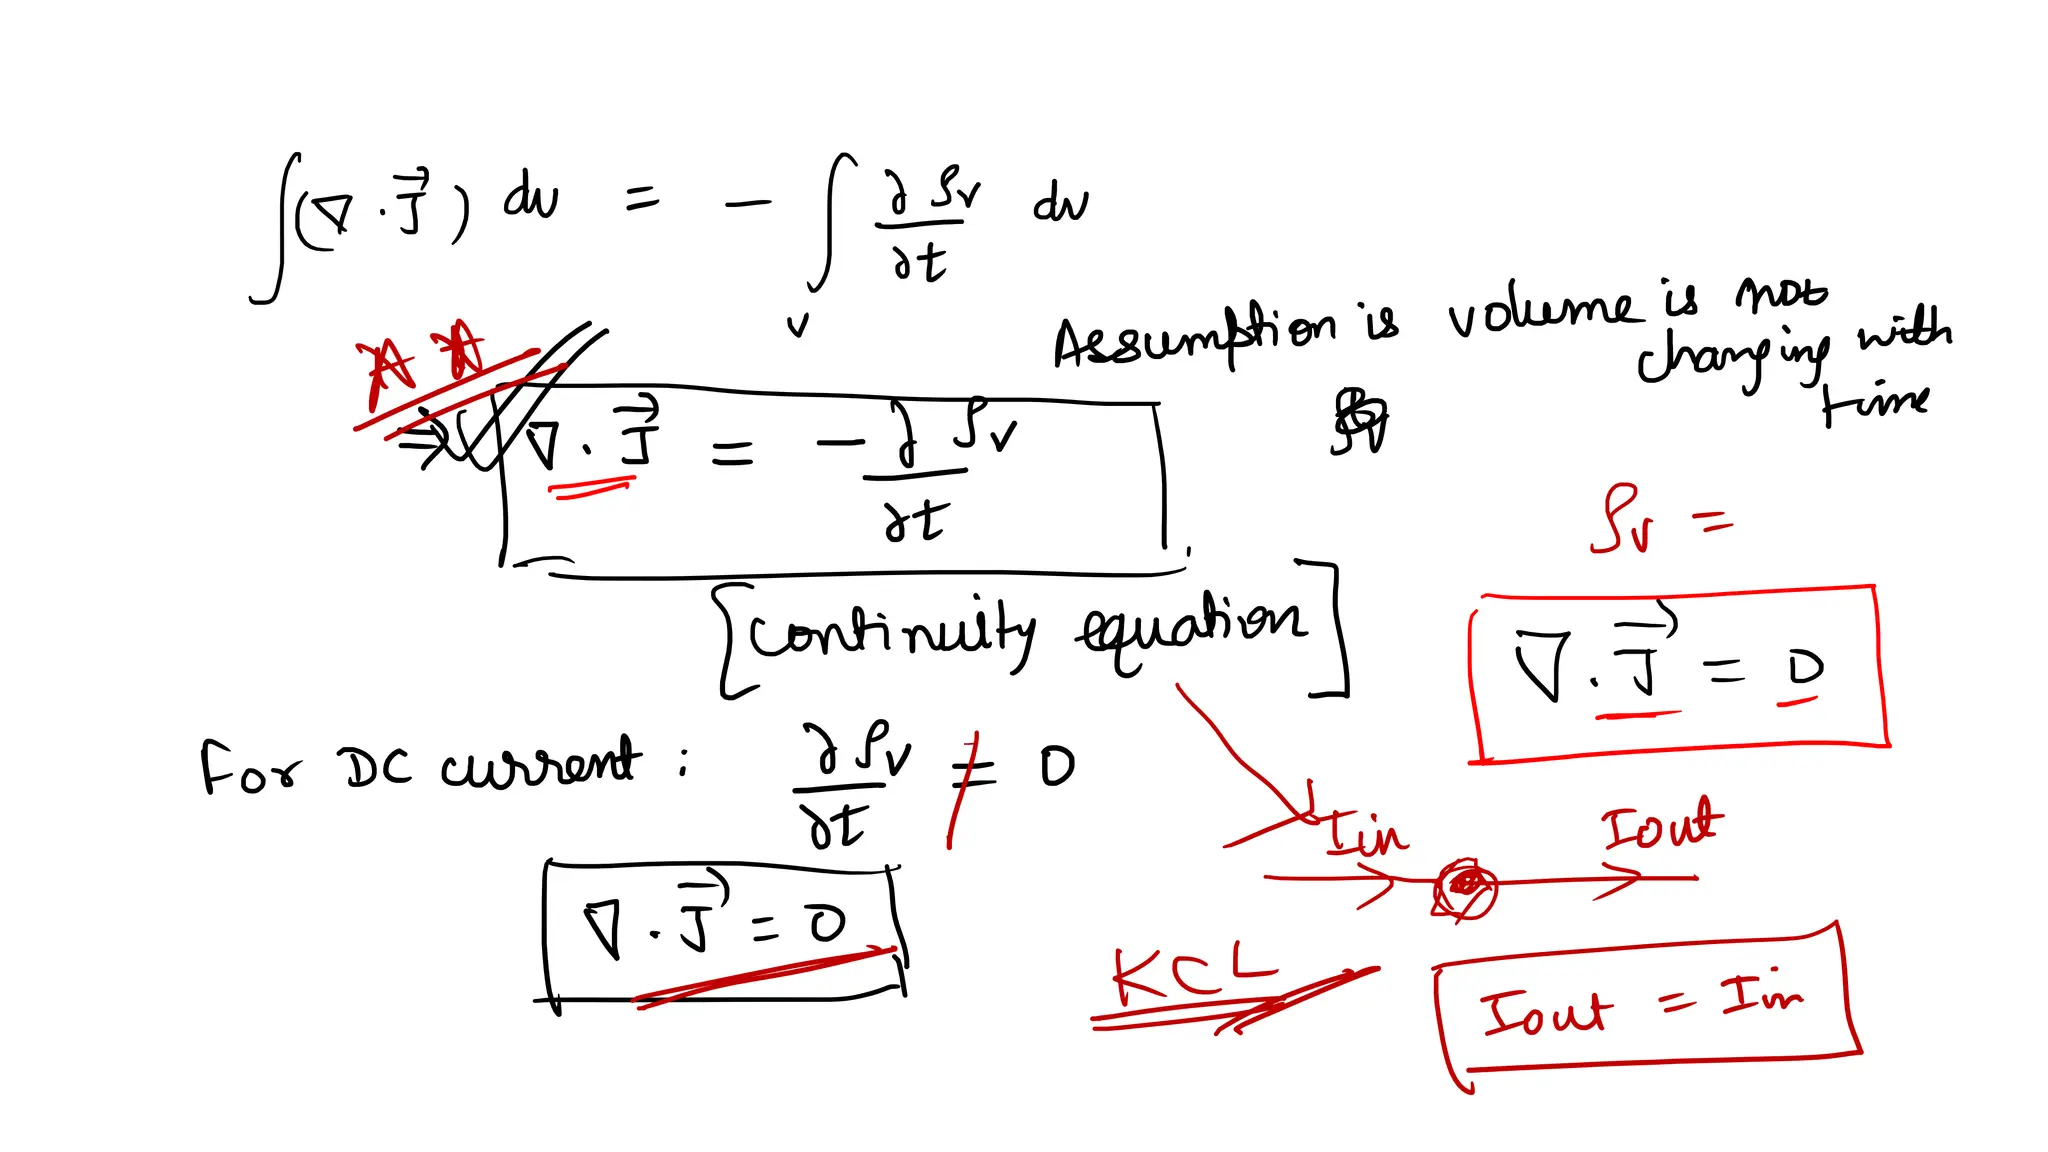 ∫(∇ · J⃗) dv = − ∫_v ∂ρv/∂t dv
Assumption is volume is not
changing with
time
⇒ ∇ · J⃗ = −∂ρv/∂t
ρv =
[continuity equation]
∇ · J⃗ = 0
For DC current : ∂ρv/∂t ≠ 0
Iin Iout
∇ · J⃗ = 0
KCL
Iout = Iin